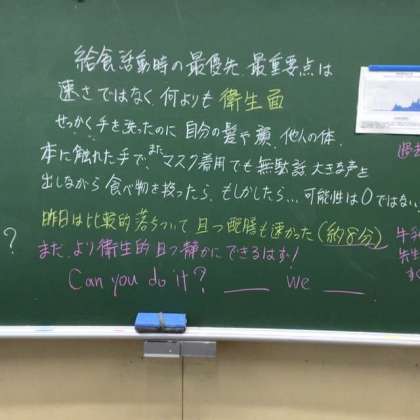 給食活動時の最優先、最重要点は
速さではなく何よりも衛生面
せっかく手を洗ったのに自分の髪や顔、他人の体、
本に触れた手で、またマスク着用でも無駄話 大きな声を
出しながら食べ物を扱ったら、もしかしたら…可能性は0ではない。
昨日は比較的落ちついて且つ配膳も速かった(約8分)
また、より衛生的且つ静かにできるはず!
Can you do it? ___ we ___
?
牛乳
先生